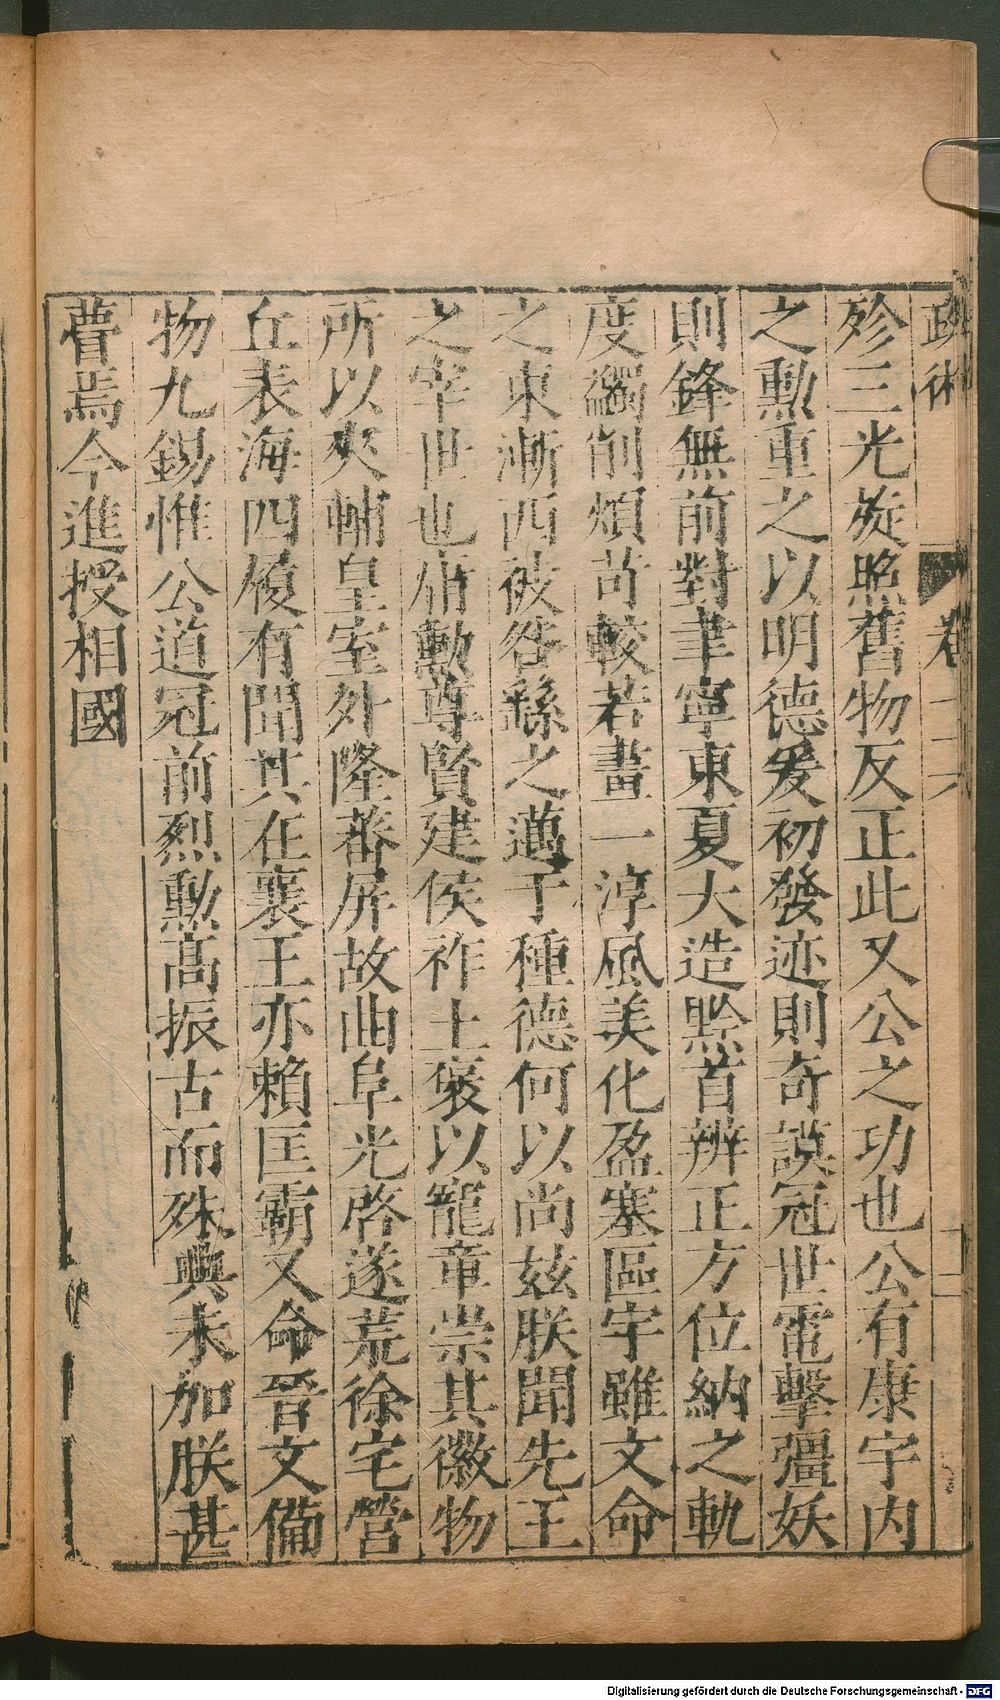 政術 卷二十六
殄三光旋照舊物反正此又公之功也公有康宇內
之勳重之以明德爰初發迹則奇謨冠世電擊彊妖
則鋒無前對聿寧東夏大造黔首辨正方位納之軌
度蠲削煩苛較若畫一淳風美化盈塞區宇雖文命
之東漸西被咎繇之邁于種德何以尚玆朕聞先王
之宰世也庸勳尊賢建侯祚土褒以寵章崇其徽物
所以夾輔皇室外隆蕃屏故曲阜光啓遂荒徐宅營
丘表海四履有聞其在襄王亦賴匡霸又命晉文備
物九錫惟公道冠前烈勳高振古而殊典未加朕甚
瞢焉今進授相國
Digitalisierung gefördert durch die Deutsche Forschungsgemeinschaft - DFG